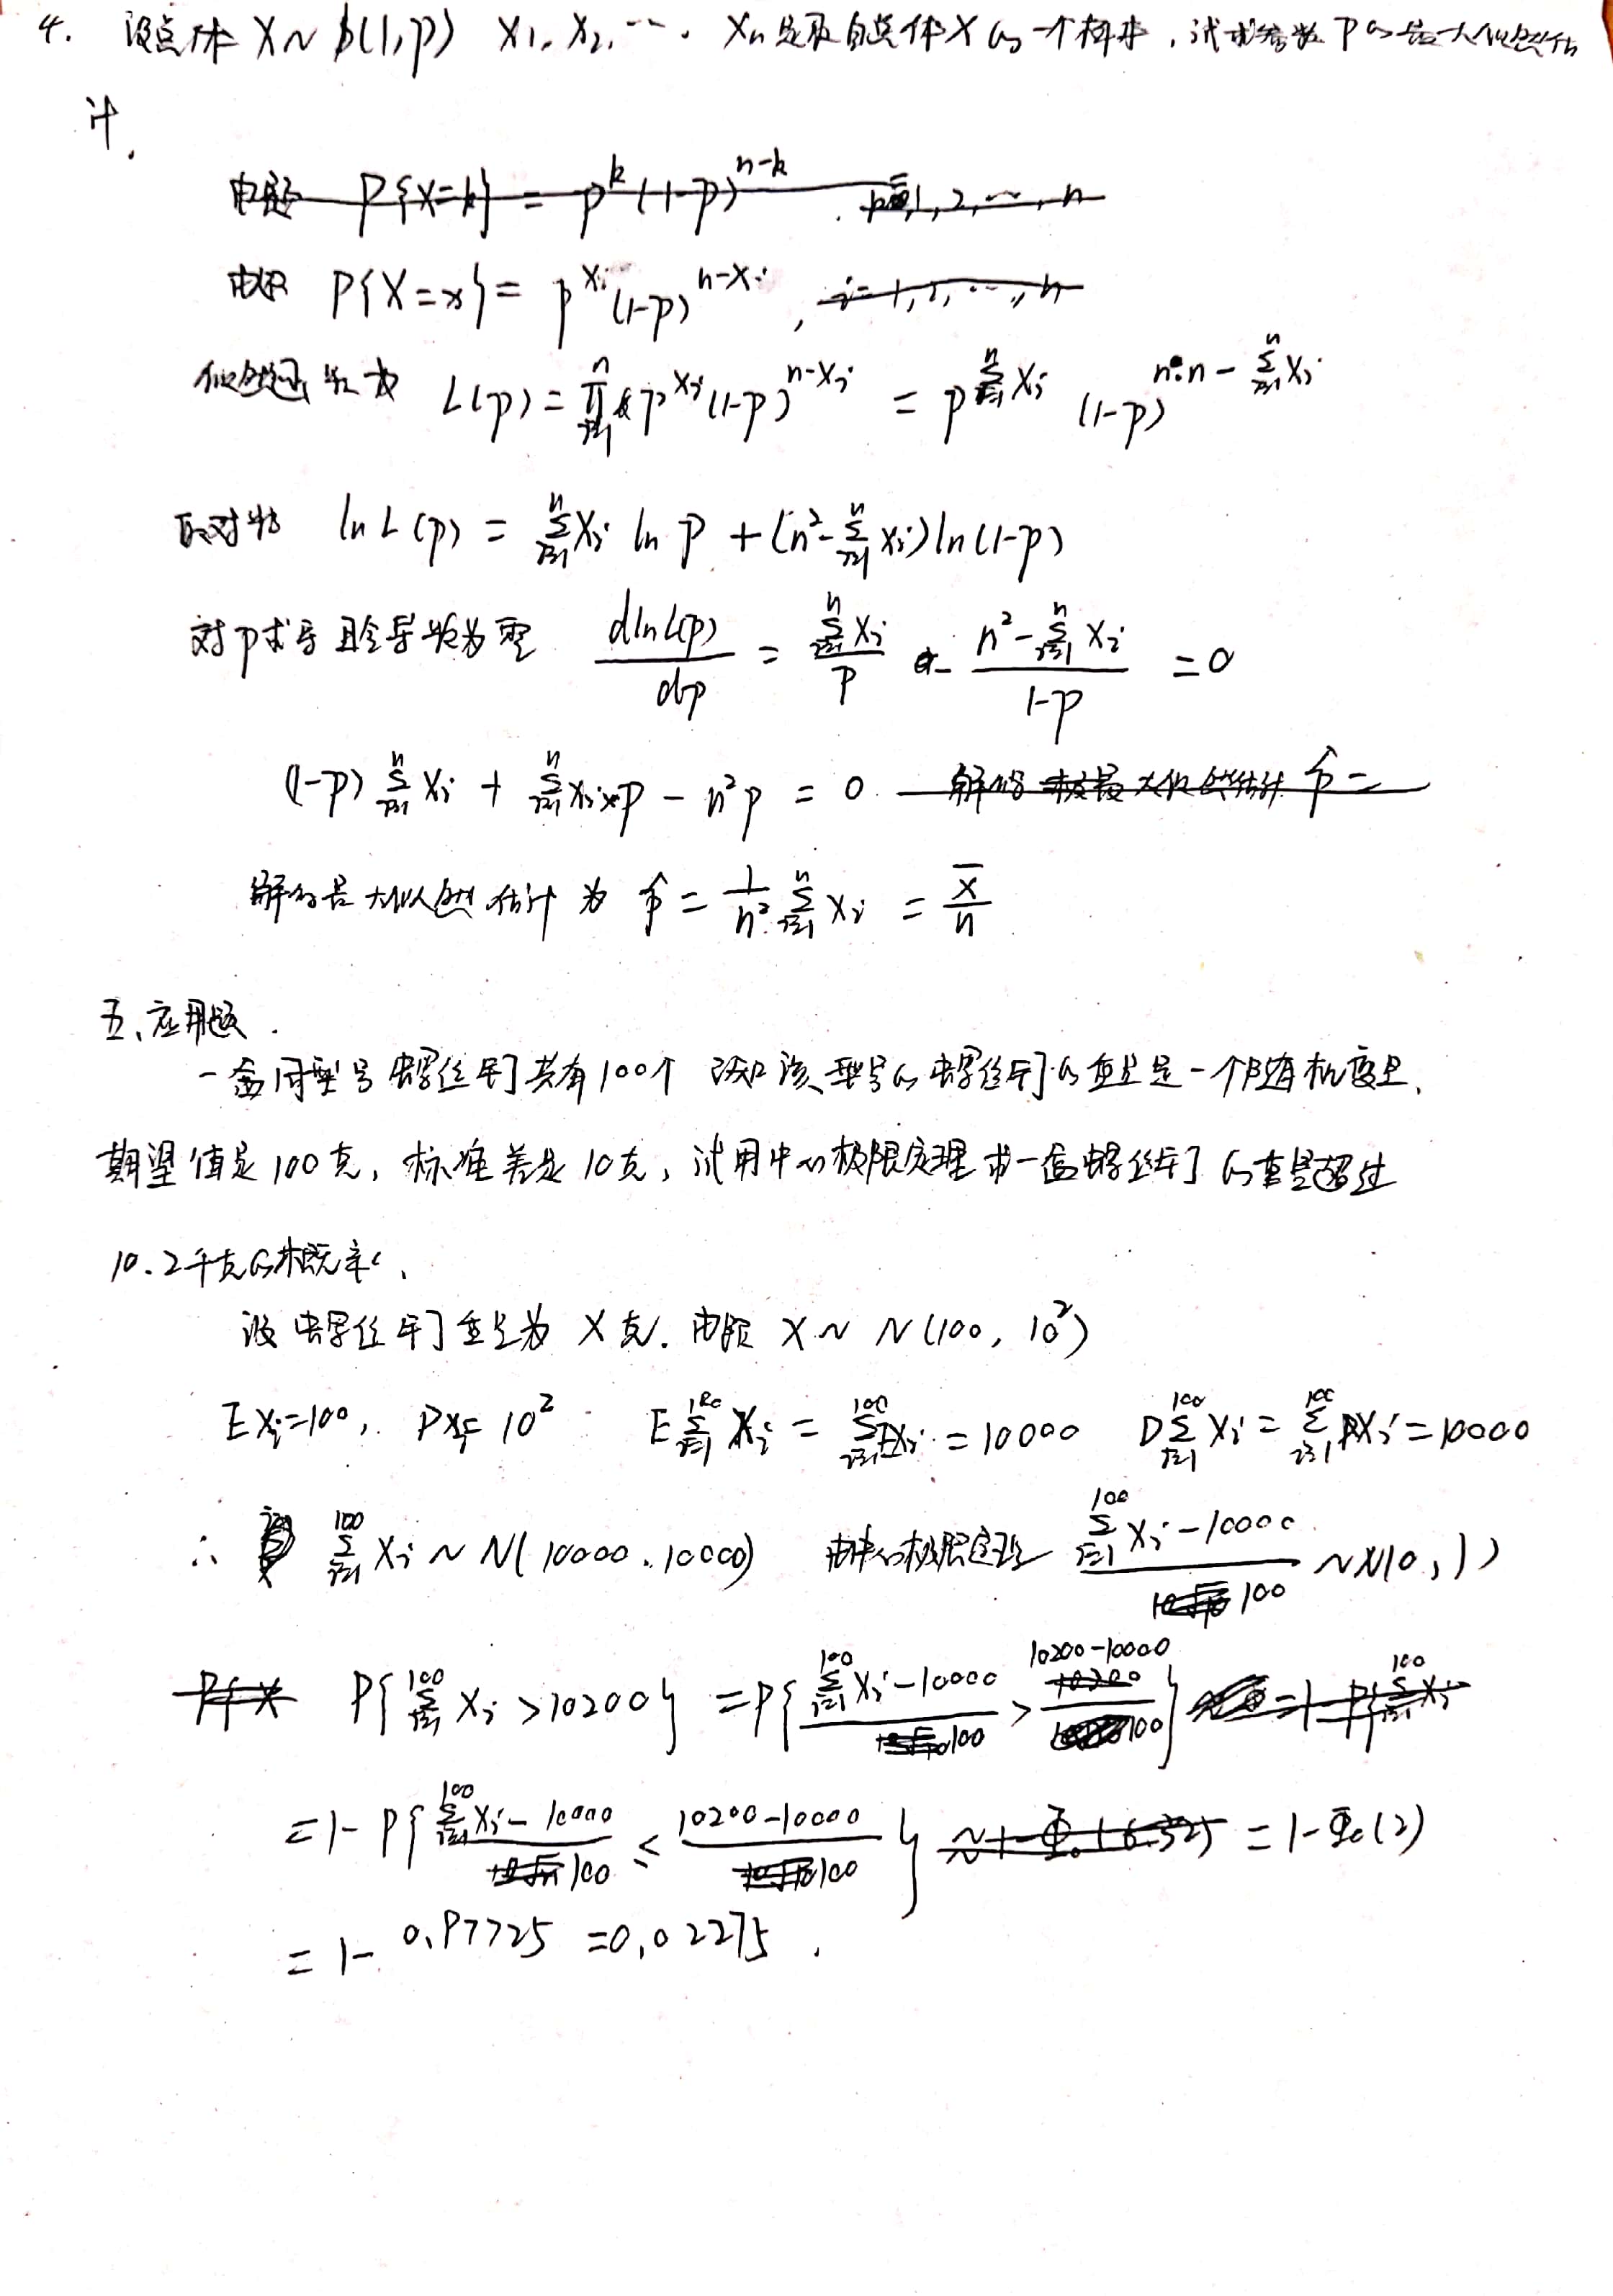 4. 设总体 X ~ b(1,p) X1, X2, …, Xn 是取自总体 X 的一个样本,试求参数 P 的最大似然估
计.
由题 P{X=k} = p^k (1-p)^{n-k} . k=0,1,2,…,n
由题 P{X=x} = p^{Xi} (1-p)^{n-Xi} , i=1,2,…,n
似然函数为 L(p) = ∏_{i=1}^{n} p^{Xi} (1-p)^{n-Xi} = p^{∑_{i=1}^{n} Xi} (1-p)^{n·n - ∑_{i=1}^{n} Xi}
取对数 ln L(p) = ∑_{i=1}^{n} Xi ln P + (n² - ∑_{i=1}^{n} Xi) ln(1-p)
对p求导且令导数为零 dlnL(p)/dp = ∑_{i=1}^{n} Xi / P - (n² - ∑_{i=1}^{n} Xi)/(1-p) = 0
(1-p) ∑_{i=1}^{n} Xi + ∑_{i=1}^{n} Xi × p - n² p = 0 解得 最大似然估计 p̂ =
解得最大似然估计为 p̂ = 1/n² ∑_{i=1}^{n} Xi = X̄/n
五、应用题.
一盒同型号螺丝钉共有100个 已知该型号的螺丝钉的重量是一个随机变量,
期望值是100克,标准差是10克,试用中心极限定理求一盒螺丝钉的重量超过
10.2千克的概率.
设螺丝钉重量为 X 克. 由题 X ~ N(100, 10²)
EXi=100, DXi=10² E∑_{i=1}^{100} Xi = ∑_{i=1}^{100} EXi = 10000 D∑_{i=1}^{100} Xi = ∑_{i=1}^{100} DXi = 10000
∴ ∑_{i=1}^{100} Xi ~ N(10000, 10000) 由中心极限定理 (∑_{i=1}^{100} Xi - 10000)/100 ~ N(0,1)
P{X P{∑_{i=1}^{100} Xi > 10200} = P{(∑_{i=1}^{100} Xi - 10000)/100 > (10200-10000)/100} = 1-P{∑_{i=1}^{100} Xi
= 1 - P{(∑_{i=1}^{100} Xi - 10000)/100 ≤ (10200-10000)/100} ≈ 1-Φ0(6.325 = 1-Φ0(2)
= 1 - 0.97725 = 0.02275 .